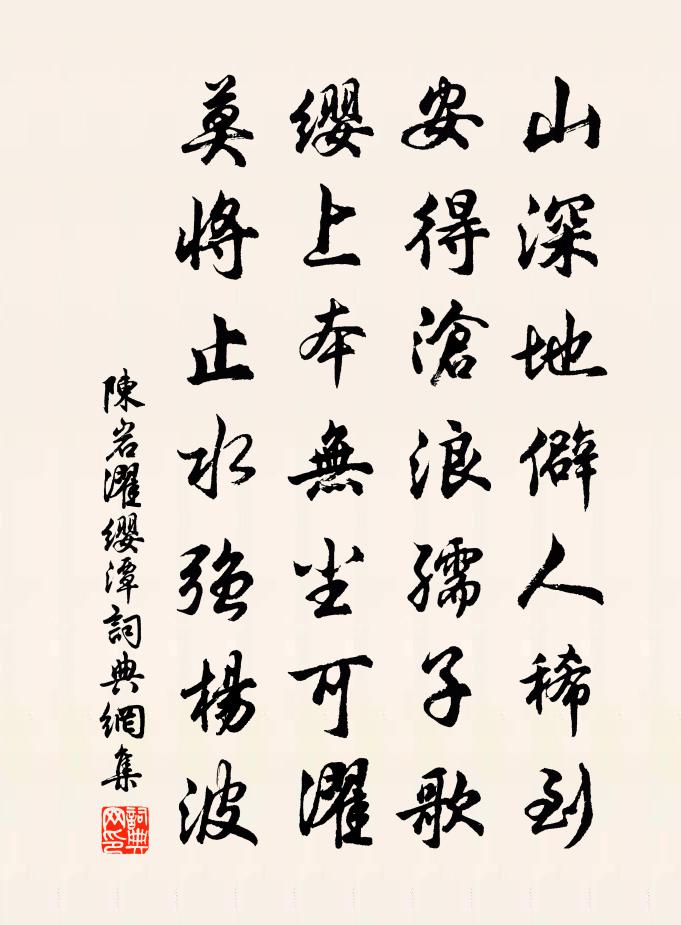 山深地僻人稀到
安得滄浪孺子歌
纓上本無尘可濯
莫將止水強楊波
陳岩濯纓潭詞典網集
詞典
网印